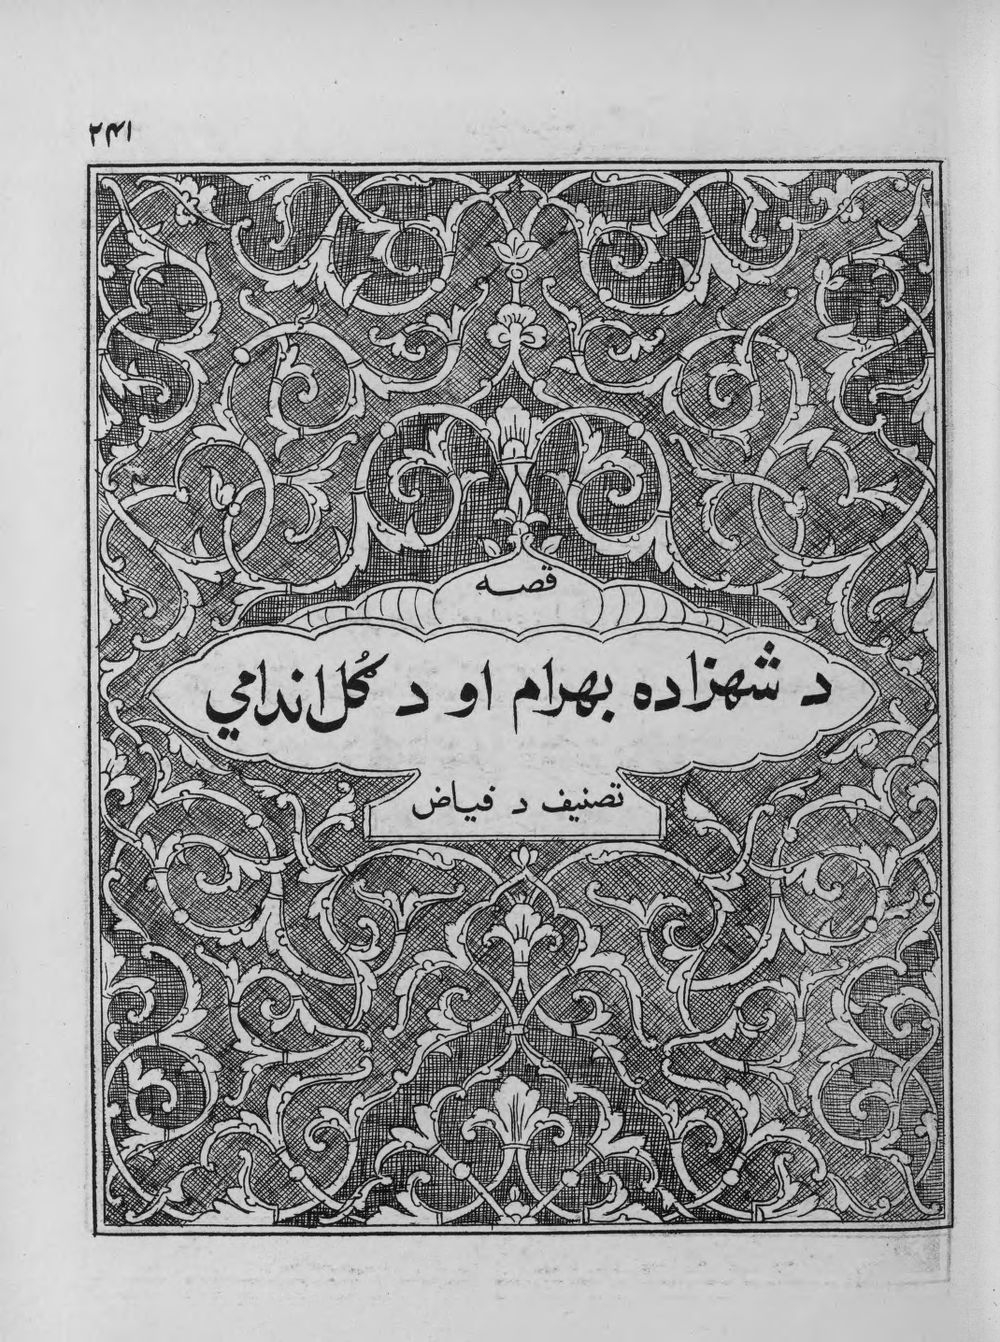 ۲۴۱
قصه
د شهزاده بهرام او د ګل اندامي
تصنیف د فیاض